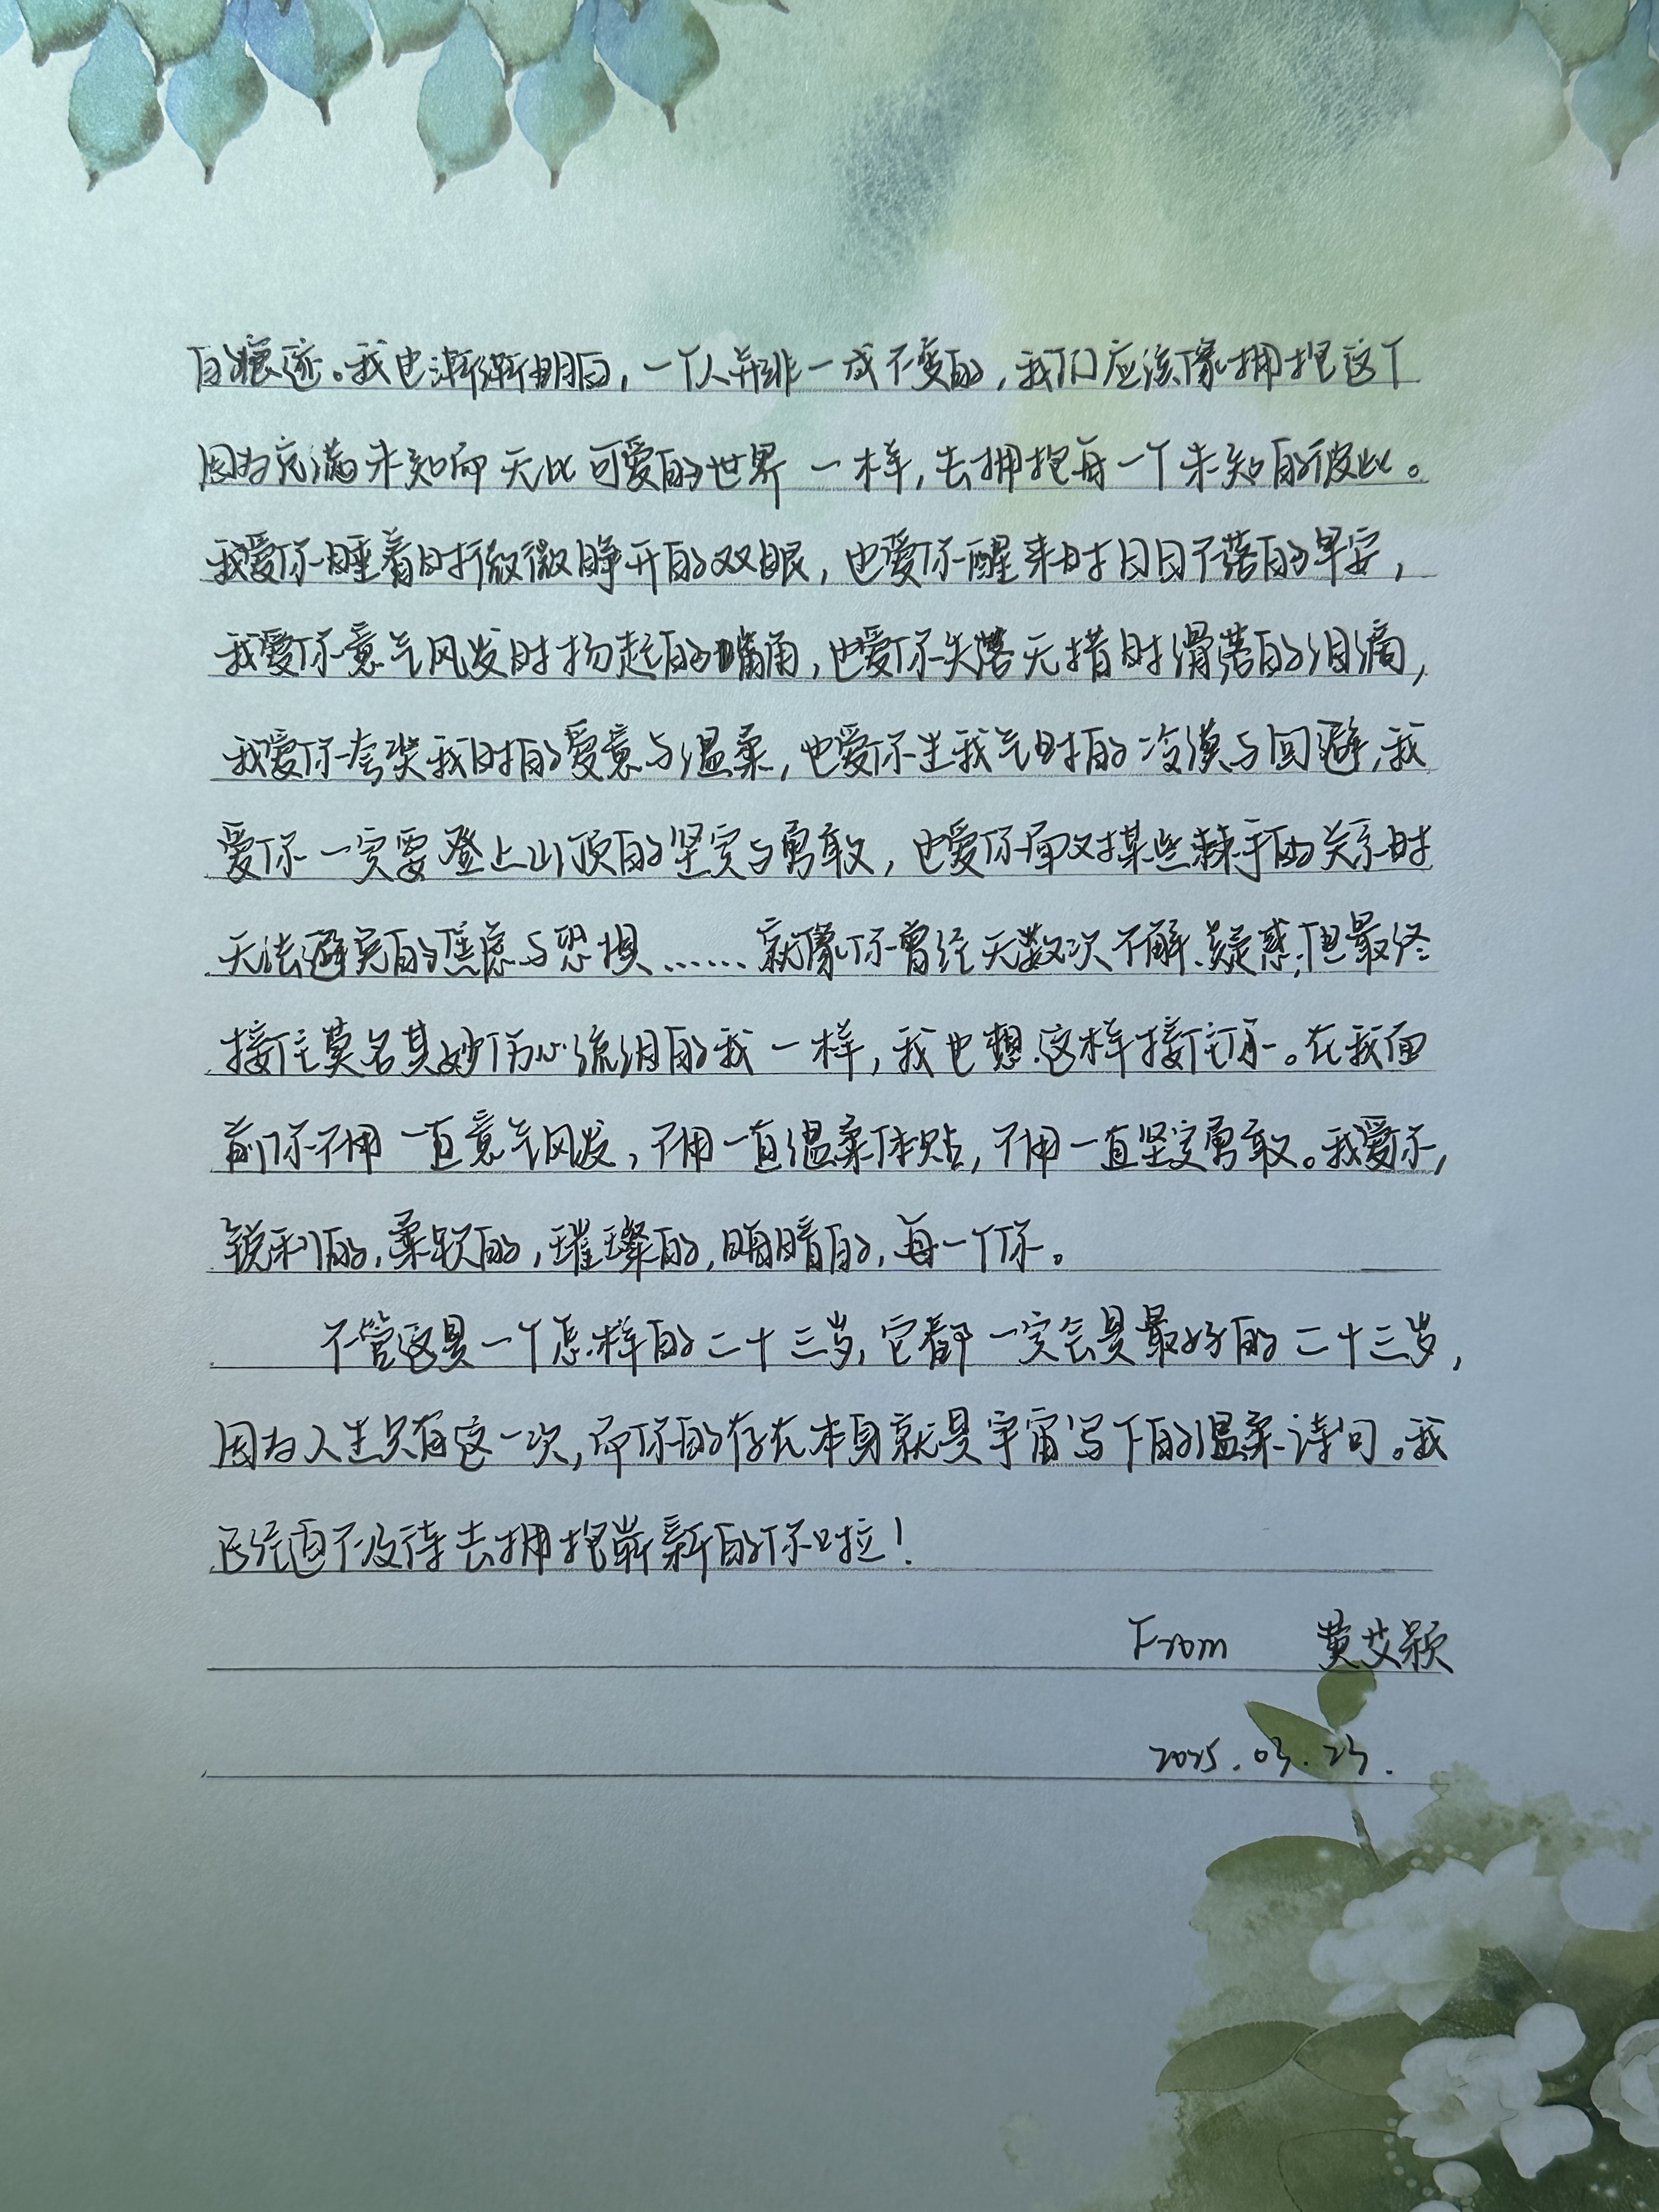 的痕迹。我也渐渐明白，一个人并非一成不变的，我们应该像拥抱这个
因为充满未知而无比可爱的世界一样，去拥抱每一个未知的彼此。
我爱你睡着时微微睁开的双眼，也爱你醒来时日日不落的早安，
我爱你意气风发时扬起的嘴角，也爱你失落无措时滑落的泪滴，
我爱你夸奖我时的爱意与温柔，也爱你生我气时的冷漠与回避，我
爱你一定要登上山顶的坚定与勇敢，也爱你面对某些棘手的关系时
无法避免的焦虑与恐惧……就像你曾经无数次不解、疑惑，但最终
接住莫名其妙伤心流泪的我一样，我也想这样接住你。在我面
前你不用一直意气风发，不用一直温柔体贴，不用一直坚定勇敢。我爱你，
锐利的，柔软的，璀璨的，晦暗的，每一个你。
不管这是一个怎样的二十三岁，它都一定会是最好的二十三岁，
因为人生只有这一次，而你的存在本身就是宇宙写下的温柔诗句。我
已经迫不及待去拥抱崭新的你啦！
From 黄艾颖
2025.03.23.